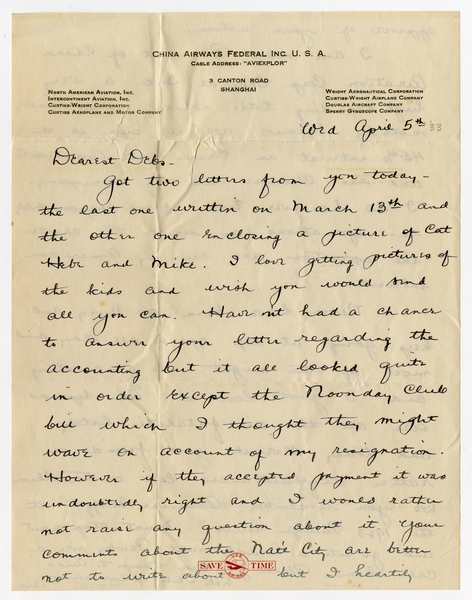 CHINA AIRWAYS FEDERAL INC. U. S. A.
CABLE ADDRESS: "AVIEXPLOR"
3 CANTON ROAD
SHANGHAI
NORTH AMERICAN AVIATION, INC.
INTERCONTINENT AVIATION, INC.
CURTISS-WRIGHT CORPORATION
CURTISS AEROPLANE AND MOTOR COMPANY
WRIGHT AERONAUTICAL CORPORATION
CURTISS-WRIGHT AIRPLANE COMPANY
DOUGLAS AIRCRAFT COMPANY
SPERRY GYROSCOPE COMPANY
Wed April 5th 33
Dearest Debs-
Got two letters from you today-
the last one written on March 13th and
the other one enclosing a picture of Cat
Hebe and Mike. I love getting pictures of
the kids and wish you would send
all you can. Haven't had a chance
to answer your letter regarding the
accounting but it all looked quite
in order except the Noonday Club
bill which I thought they might
wave on account of my resignation.
However if they accepted payment it was
undoubtedly right and I would rather
not raise any question about it. Your
comments about the Nat'l City are better
not to write about but I heartily
SAVE TIME